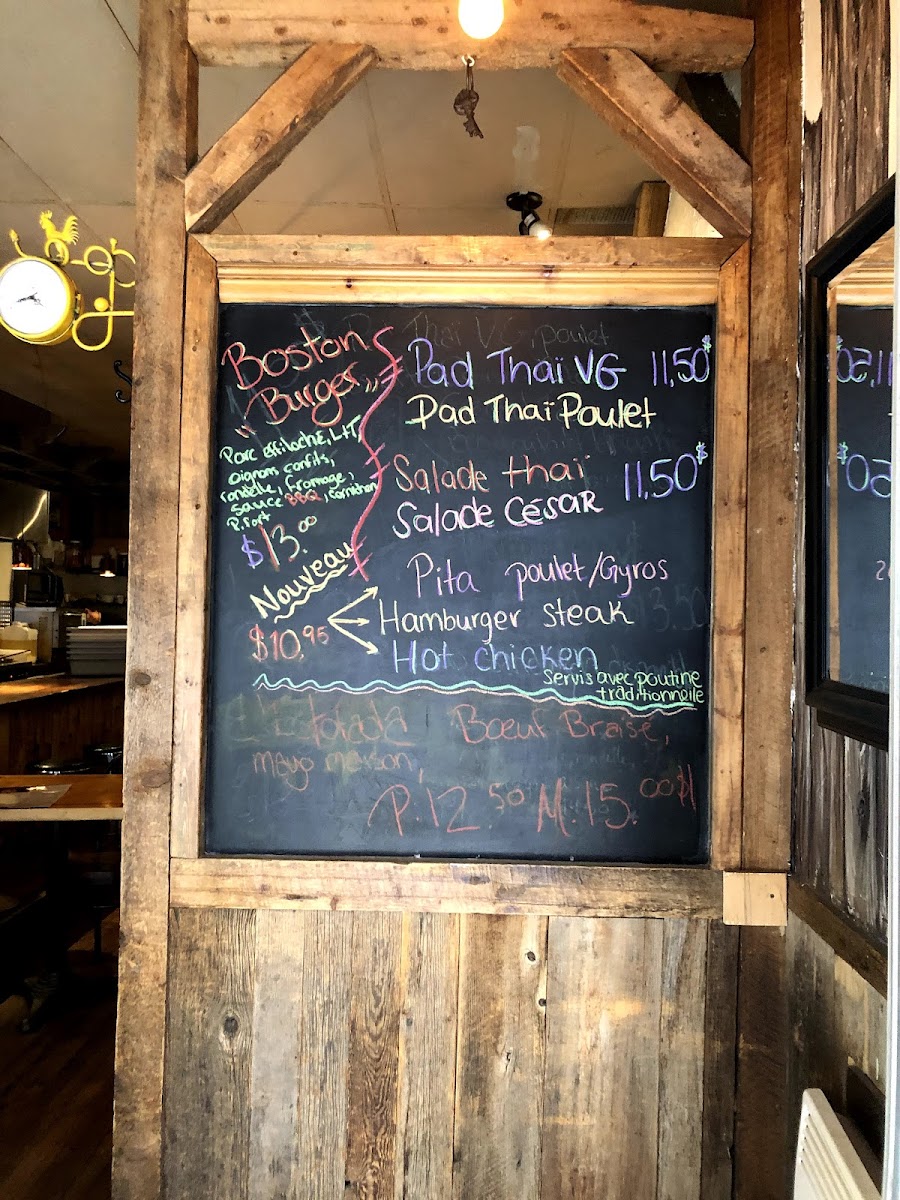 Boston
"Burger"
Porc effiloché, LHT,
oignons confits,
rondelle, fromage,
sauce BBQ, cornichon
P. Fort
$13.00
Nouveau
$10,95
Pad Thaï VG 11,50$
Pad Thaï Poulet
Salade thaï 11,50$
Salade César
Pita poulet/Gyros
Hamburger steak
Hot chicken
Servis avec poutine
traditionnelle
Bœuf Braisé,
mayo maison,
P.12.50 M.15.00$